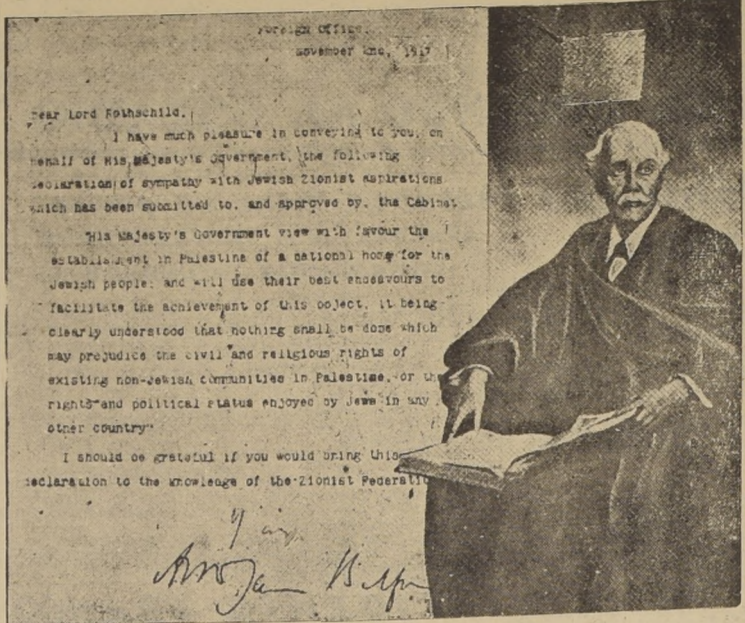 Foreign Office,
November 2nd, 1917
Dear Lord Rothschild,
I have much pleasure in conveying to you, on
behalf of His Majesty's Government, the following
declaration of sympathy with Jewish Zionist aspirations
which has been submitted to, and approved by, the Cabinet
"His Majesty's Government view with favour the
establishment in Palestine of a national home for the
Jewish people, and will use their best endeavours to
facilitate the achievement of this object, it being
clearly understood that nothing shall be done which
may prejudice the civil and religious rights of
existing non-Jewish communities in Palestine, or the
rights and political status enjoyed by Jews in any
other country"
I should be grateful if you would bring this
declaration to the knowledge of the Zionist Federatio